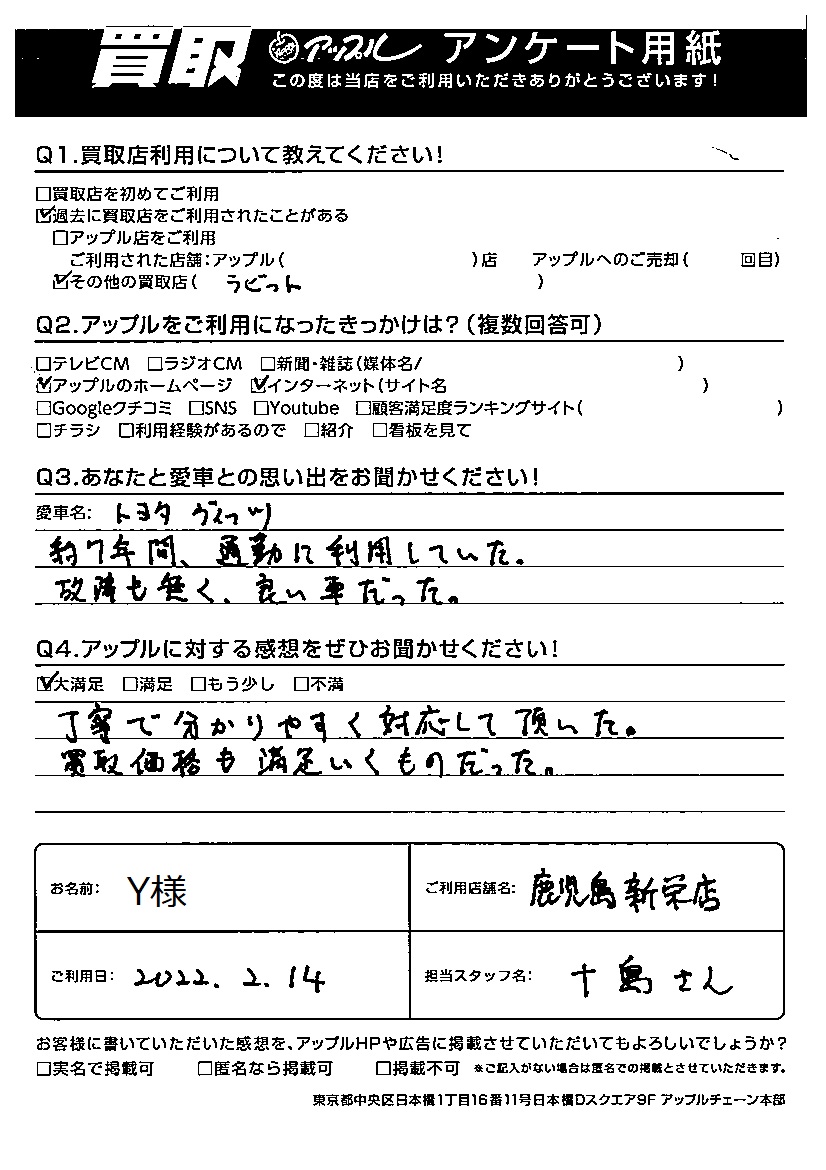 買取 アップル アンケート用紙
この度は当店をご利用いただきありがとうございます!
Q1.買取店利用について教えてください!
□買取店を初めてご利用
☑過去に買取店をご利用されたことがある
□アップル店をご利用
ご利用された店舗:アップル( )店 アップルへのご売却( 回目)
☑その他の買取店( ラビット )
Q2.アップルをご利用になったきっかけは?(複数回答可)
□テレビCM □ラジオCM □新聞・雑誌(媒体名/ )
☑アップルのホームページ ☑インターネット(サイト名 )
□Googleクチコミ □SNS □Youtube □顧客満足度ランキングサイト( )
□チラシ □利用経験があるので □紹介 □看板を見て
Q3.あなたと愛車との思い出をお聞かせください!
愛車名: トヨタ ヴィッツ
約7年間、通勤に利用していた。
故障も無く、良い車だった。
Q4.アップルに対する感想をぜひお聞かせください!
☑大満足 □満足 □もう少し □不満
丁寧で分かりやすく対応して頂いた。
買取価格も満足いくものだった。
お名前: Y様 ご利用店舗名: 鹿児島新栄店
ご利用日: 2022. 2. 14 担当スタッフ名: 十島さん
お客様に書いていただいた感想を、アップルHPや広告に掲載させていただいてもよろしいでしょうか?
□実名で掲載可 □匿名なら掲載可 □掲載不可 ※ご記入がない場合は匿名での掲載とさせていただきます。
東京都中央区日本橋1丁目16番11号日本橋Dスクエア9F アップルチェーン本部